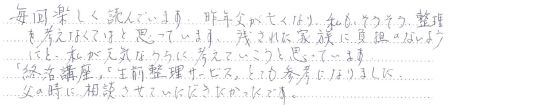 毎回楽しく読んでいます。昨年父が亡くなり、私もそろそろ整理
を考えなくてはと思っています。残された家族に負担のないよう
にと、私が元気なうちに考えていこうと思っています。
「終活講座」「生前整理サービス」とても参考になりました。
父の時に相談させていただきたかったです。